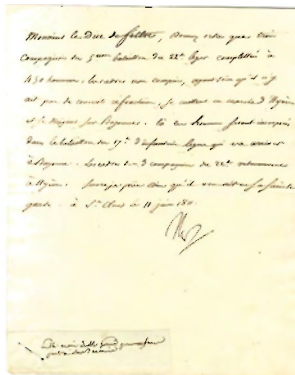 Monsieur le Duc de feltre, Donnez ordre que trois
Compagnies du 5eme bataillon du 22e leger completées à
450 hommes, les cadres non compris, ayant soin qu'il n'y
ait pas de conscrit refractaire, se mettent en marche d'
et se dirigent sur Bayonne. là ces hommes seront incorporés
dans le bataillon du 17e d'infanterie legere qui va arriver
à Bayonne. Les cadres des 3 compagnies du 22e retourneront
à . Sur ce, je prie Dieu qu'il vous ait en sa sainte
garde. à St Cloud le 11 juin 1811